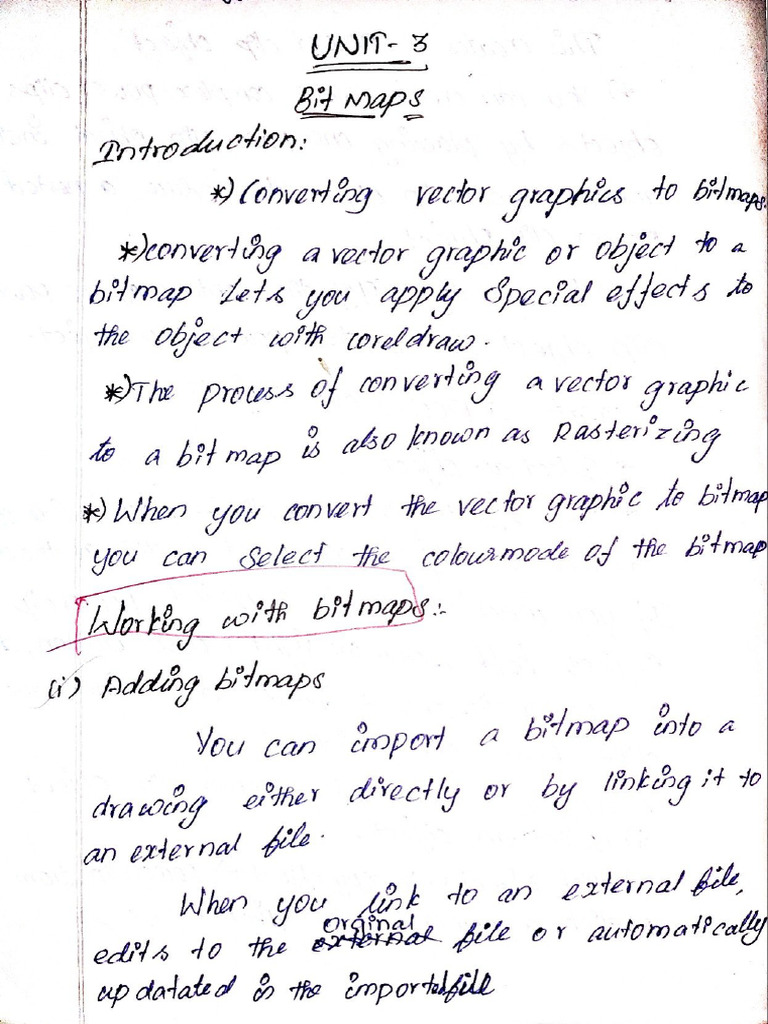 UNIT-3
Bit Maps
Introduction:
*) Converting vector graphics to bitmaps.
*) converting a vector graphic or object to a
bitmap Lets you apply Special effects to
the object with coreldraw.
*) The process of converting a vector graphic
to a bitmap is also known as Rasterizing
*) When you convert the vector graphic to bitmap
you can select the colourmode of the bitmap
Working with bitmaps:-
(i) Adding bitmaps
You can import a bitmap into a
drawing either directly or by linking it to
an external file.
When you link to an external file,
orginal
edits to the external file or automatically
updatated in the imported file